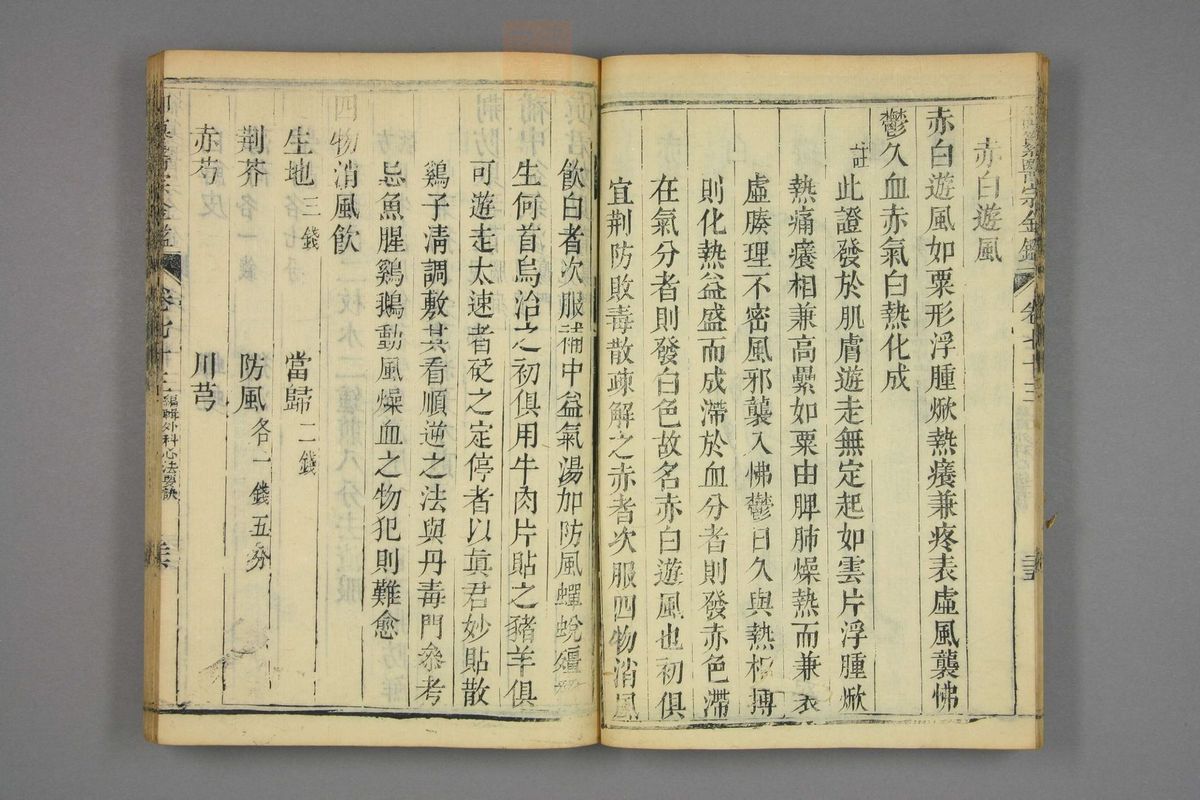 赤白遊風
赤白遊風如粟形浮腫焮熱癢兼疼表虛風襲怫
鬱久血赤氣白熱化成
註此證發於肌膚遊走無定起如雲片浮腫焮
熱痛癢相兼高纍如粟由脾肺燥熱而兼表
虛腠理不密風邪襲入怫鬱日久與熱相搏
則化熱益盛而成滯於血分者則發赤色滯
在氣分者則發白色故名赤白遊風也初俱
宜荆防敗毒散疎解之赤者次服四物消風
飲白者次服補中益氣湯加防風蟬蛻殭
生何首烏治之初俱用牛肉片貼之豬羊俱
可遊走太速者砭之定停者以眞君妙貼散
鷄子清調敷其看順逆之法與丹毒門叅考
忌魚腥鷄鵝動風燥血之物犯則難愈
四物消風飲
生地三錢 當歸二錢
荆芥 防風各一錢五分
赤芍 川芎
宗金鑑 卷七十三
卷七十三 編輯外科心法要訣